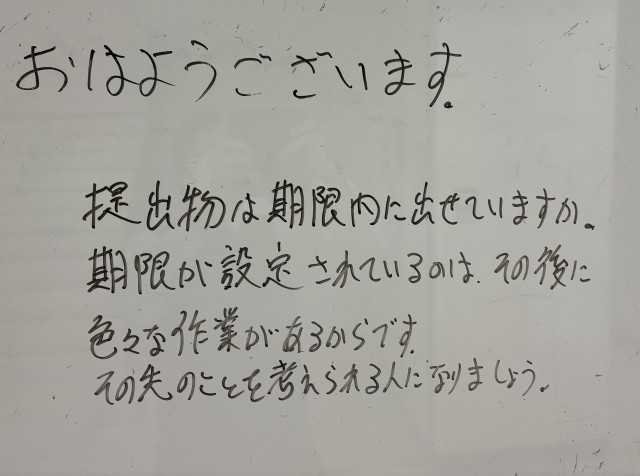 おはようございます.
提出物は期限内に出せていますか。
期限が設定されているのは、その後に
色々な作業があるからです.
その先のことを考えられる人になりましょう。